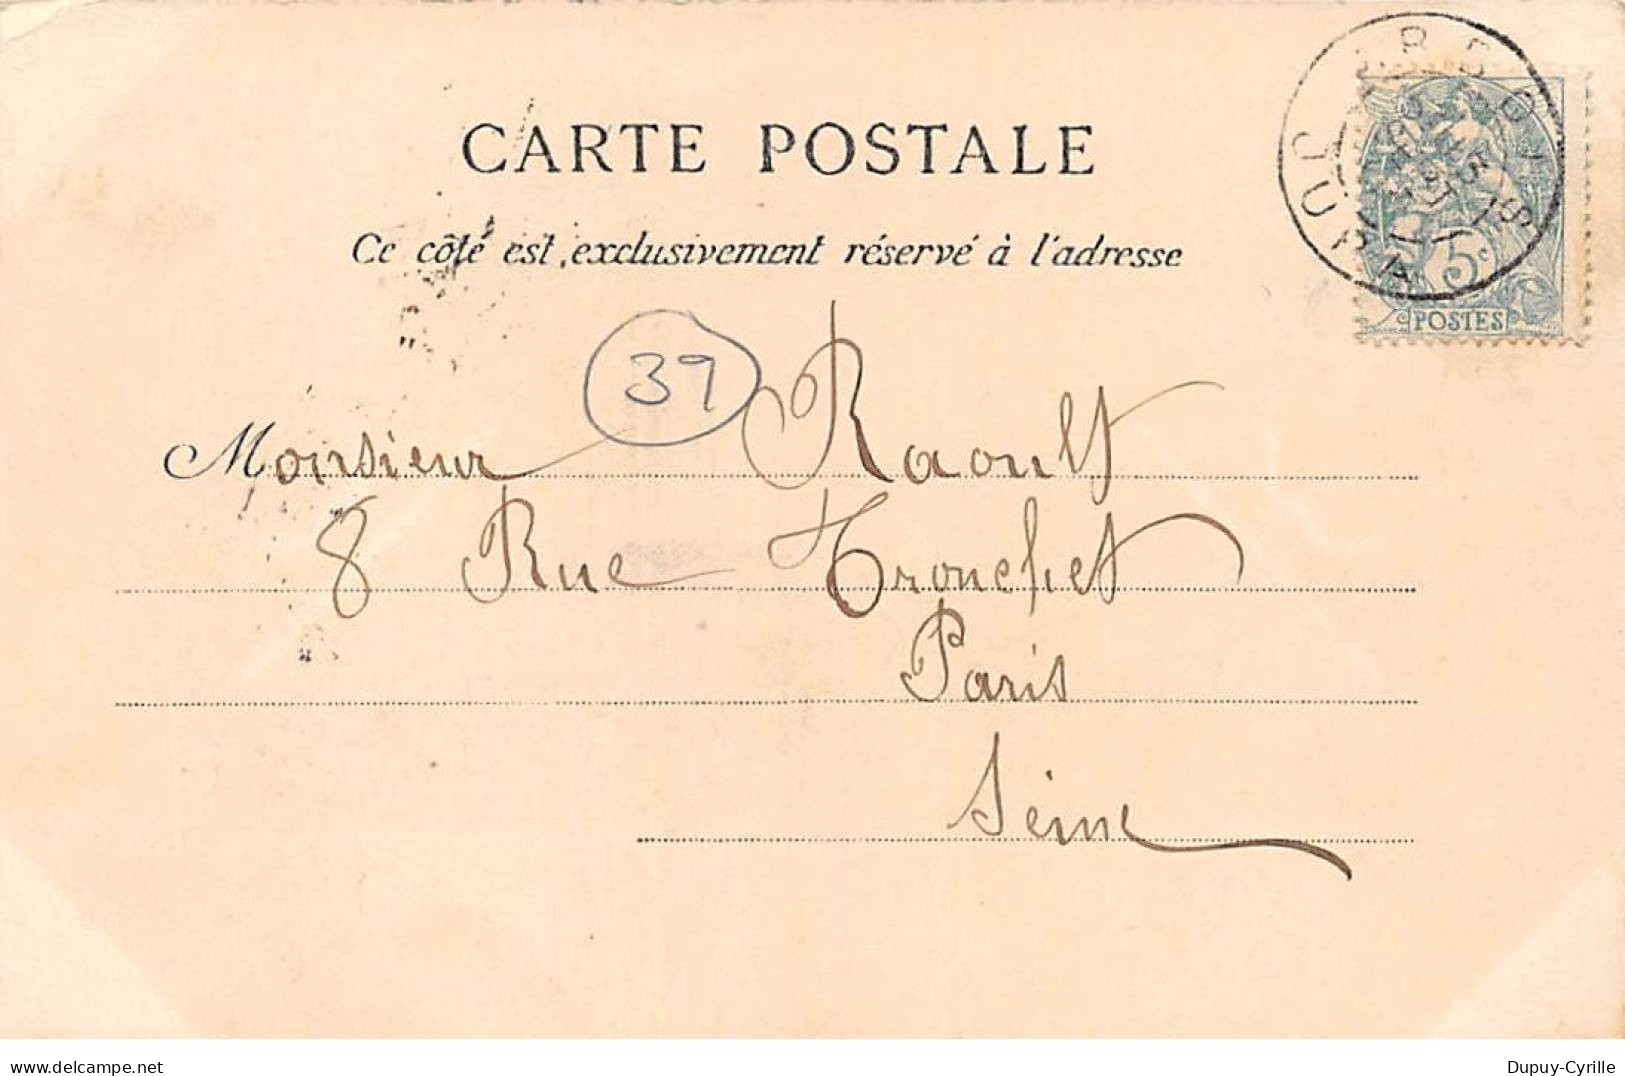 CARTE POSTALE
Ce côté est exclusivement réservé à l'adresse
5c
POSTES
39
Monsieur Raoult
8 Rue Tronchet
Paris
Seine
JURA
www.delcampe.net
Dupuy-Cyrille